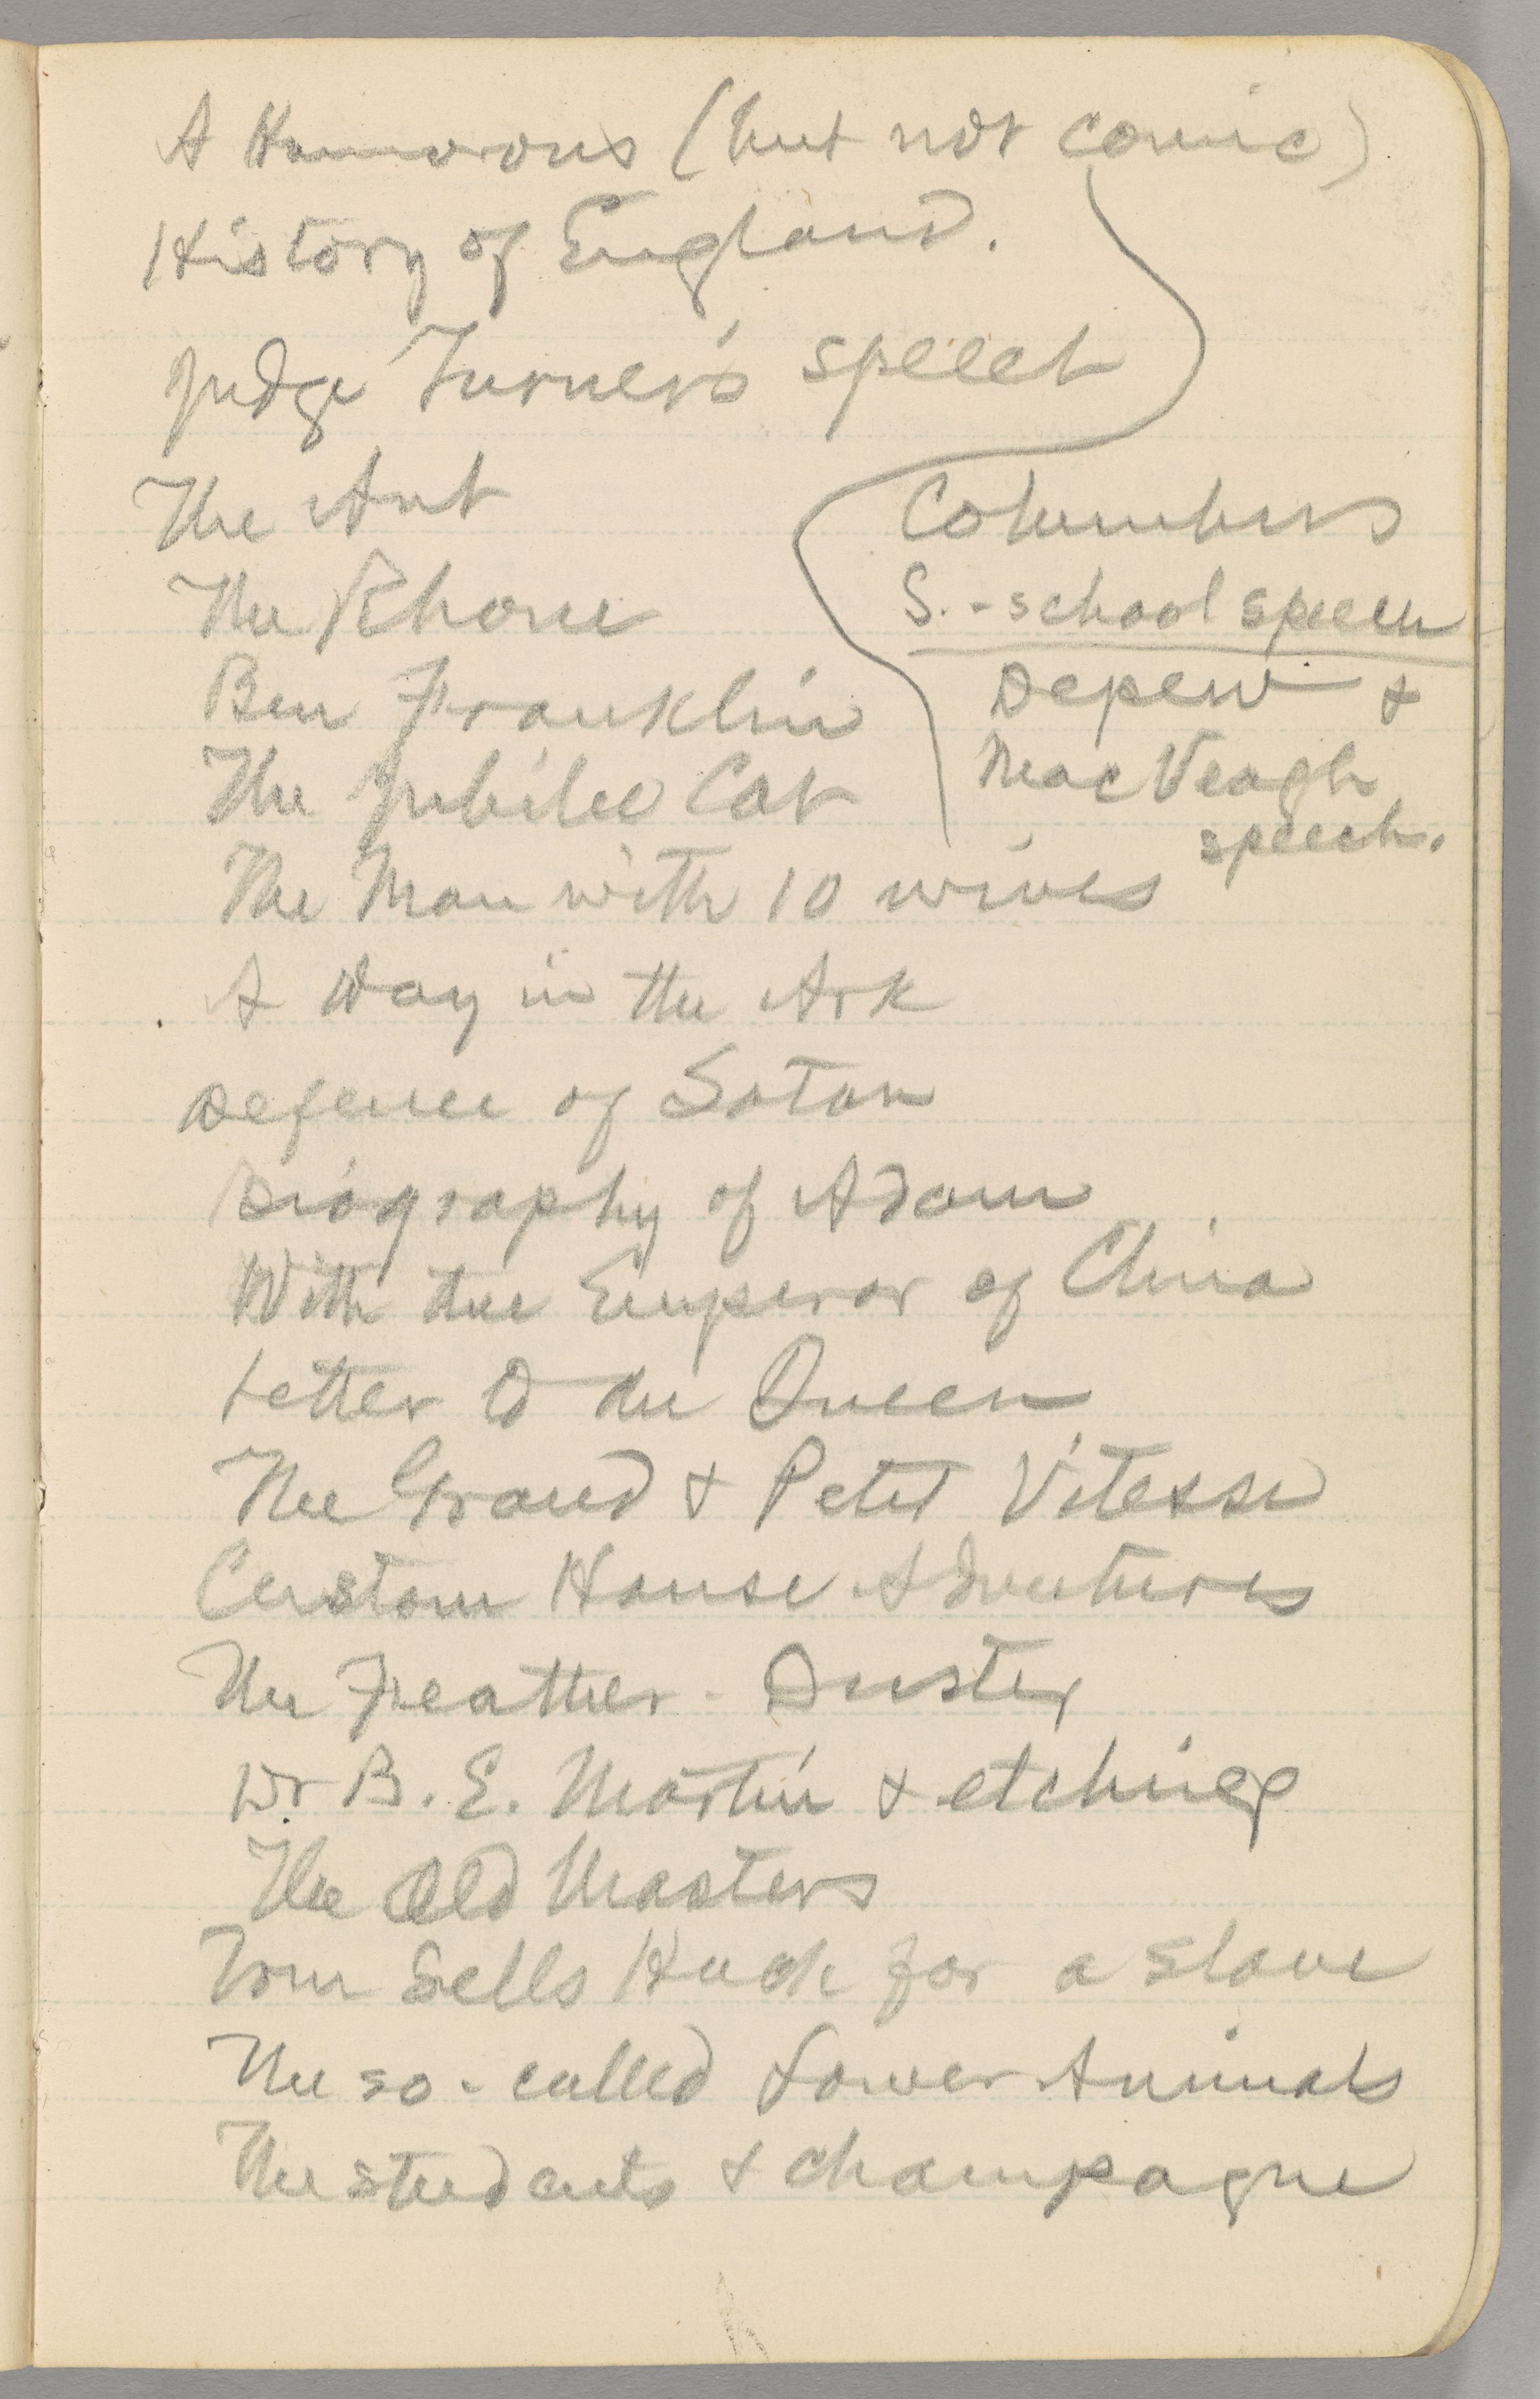 A Humorous (but not comic)
History of England.
Judge Turner's speech
The Ant
The Rhone
Ben Franklin
The Jubilee Cat
The Man with 10 wives
Columbus
S.-school speech
Depew &
MacVeagh
speech.
A Day in the Ark
Defence of Satan
Biography of Adam
With the Emperor of China
Letter to the Queen
The Grand & Petit Vitesse
Custom House Adventures
The Feather-Duster
Dr B. E. Martin & etching
The Old Masters
Tom Sells Huck for a slave
The so-called Lower Animals
The students & champagne